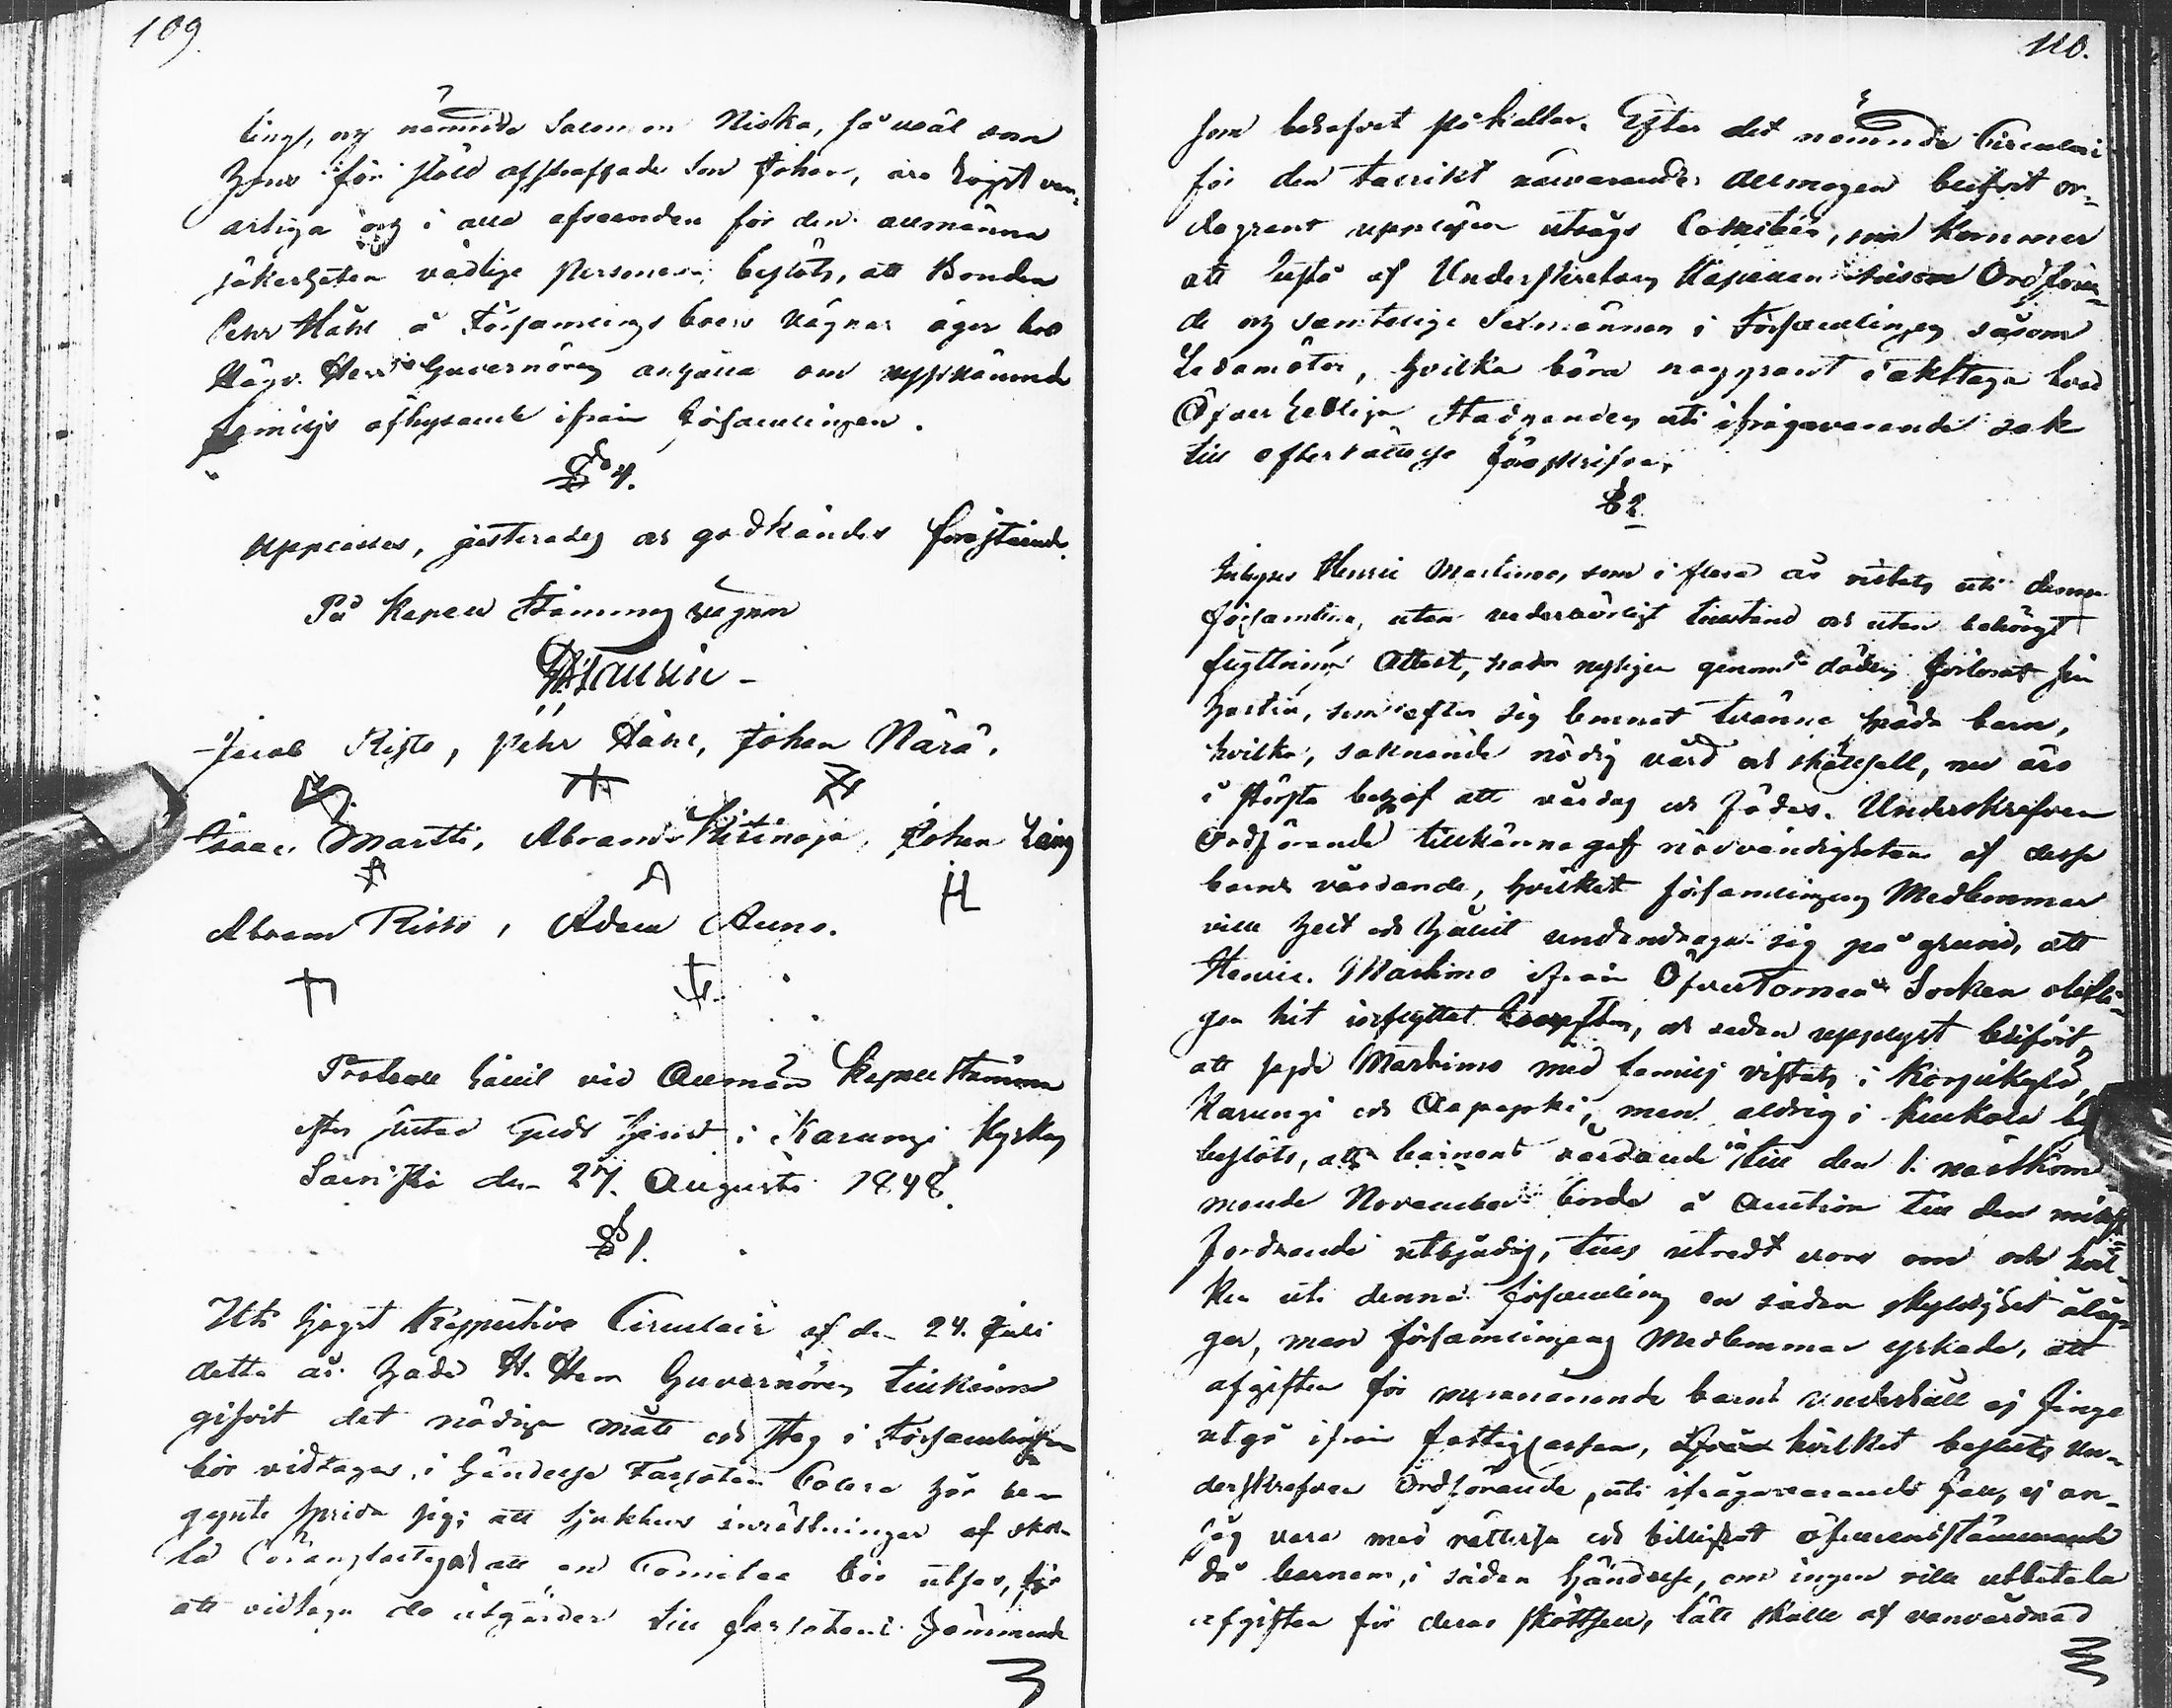 109.
ling, och nämnde Salomon Niska, så wäl som
hans för stöld afstraffade Son Johan, äro högst van-
artiga och i alla afseenden för den allmänna
säkerheten vådlige Personer; beslöts, att Bonden
Pehr Hähl å Församlings boers vägnar äger hos
Högv. Herr Guvernören anhålla om uppnämnde
familjs afhysande ifrån Församlingen.
§ 4.
Upplästes, justerades och godkändes förestående.
På Kapell Stämmans vägnar
Jacob Risto, Pehr Hähl, Johan Närä.
Isaac Martti, Abram Kitinoja, Johan Lang
Abram Risto, Adam Auno.
Protocoll hållit vid Allmän Kapellstämma
efter slutad Guds tjenst i Karungi Kyrka
Sainiska den 27. Augusti 1848.
§ 1.
Uti högst Respective Circulair af den 24. Juli
detta år hade H. Herr Guvernören tillkänna
gifvit det nödiga mått och steg i Församlingen
bör vidtagas, i händelse Farsoten Colera här be-
gynte sprida sig; att sjukhus inrättningar af
att en Comitee bör utses, för
att vidtaga de åtgärder till farsotens hämmande
110.
som behofvet påkallar. Efter det nämnde Circulair
för den talrikt närvarande Allmogen blifvit or-
dagrant uppläsen utsågs Comitéen, som kommer
att bestå af Underskrefven Kapellan såsom Ordföran-
de och samtelige Sexmännen i Församlingen såsom
Ledamöter, hvilka böra noggrant iakttaga hvad
Öfverhetliga Stadganden uti ifrågavarande sak
till efterrättelse föreskrifva.
§ 2.
Inhyses Henric Martimo, som i flera år vistats uti denna
församling, utan vederbörligt tillstånd och utan behörigt
flyttnings Attest, hade nyligen genom döden förlorat sin
hustru, som efter sig lemnat tvänne späda barn,
hvilka, saknande nödig vård och skötsell, nu äro
i största behof att vårdas och födas. Underskrefven
Ordförande tillkännagaf nödvändigheten af desse
barns vårdande, hvilket församlingens Medlemmar
ville helt och hållit undandraga sig på grund, att
Henric Martimo ifrån Öfvertorneå Socken olofli-
gen hit inflyttat, och sedan upplyst blifvit,
att sagde Martimo med familj vistats i Korpikylä,
Karungi och Aapajoki, men aldrig i Kukkola by
beslöts, att barnens vårdande till den 1. nästkom-
mande November borde å Auction till den minst
fordrande utbjudas, tills utredt vore om och hvil-
ken uti denna församling en sådan skyldighet ålig-
ger, men församlingens Medlemmar yrkade, att
afgiften för nyssnämnde barns underhåll ej finge
utgå ifrån fattigkassan, hvilket besluts Un-
derskrefven Ordförande, uti ifrågavarande fall, ej an-
såg vara med rättvisa och billighet öfverensstämmande
då barnen, i sådan händelse, om ingen ville utbetala
afgiften för deras skötsell, lätt skulle af vanvårdnad